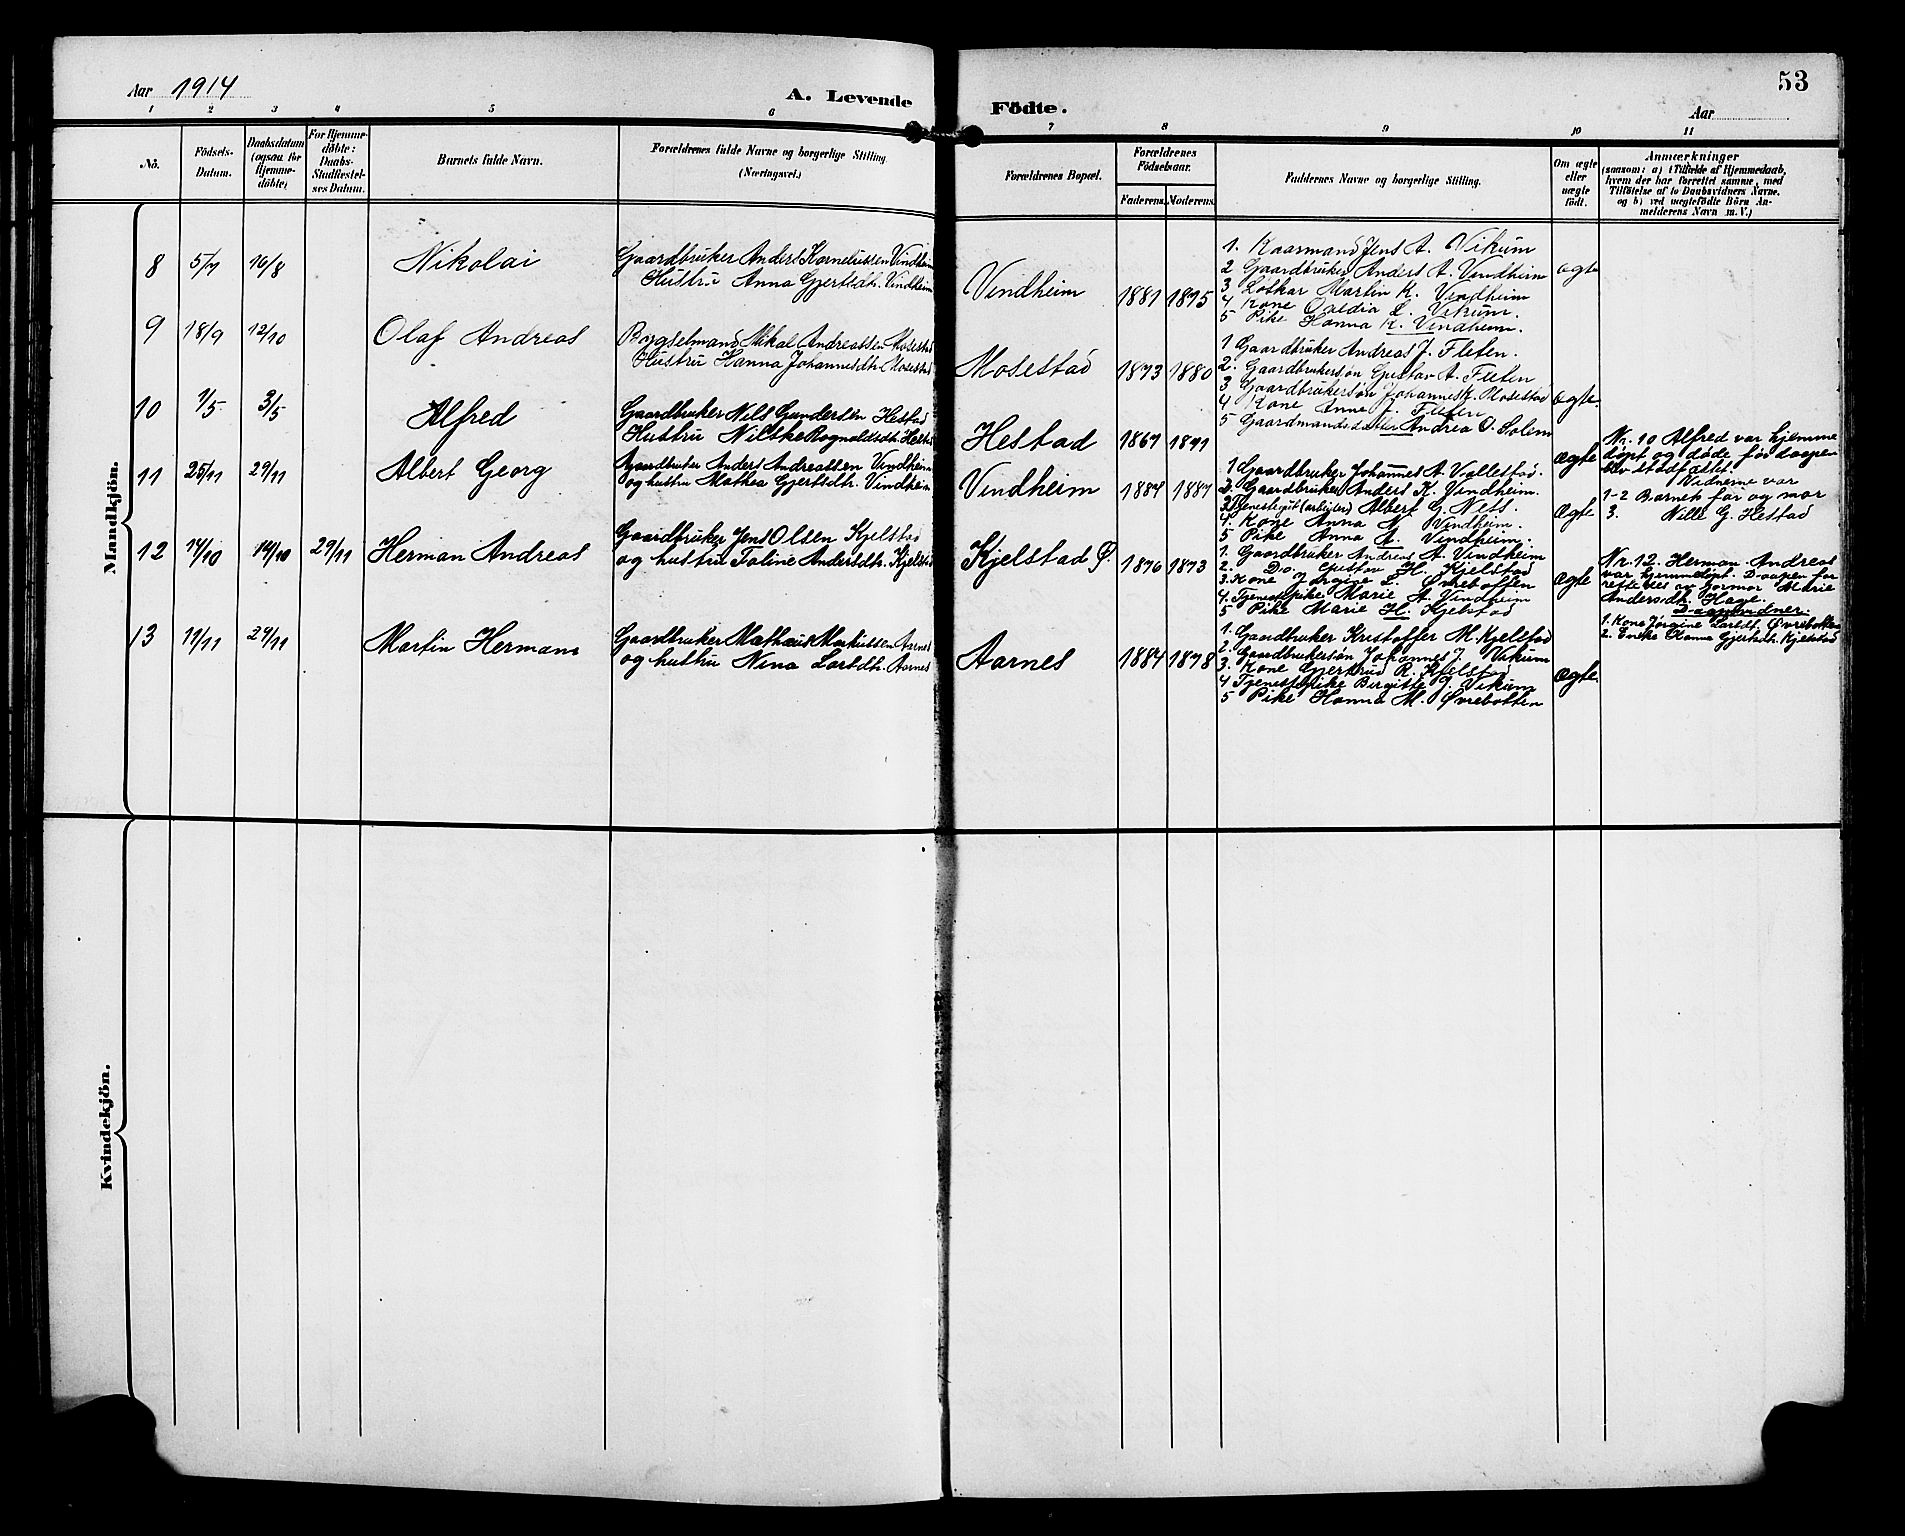 Aar 1914
A. Levende Födte.
53
Aar
1 2 3 4 5 6 7 8 9 10 11
No.
Födsels-Datum.
Daabsdatum (ogsaa for Hjemme-döbte)
For Hjemme-döbte: Daabs-Stadfæstel-ses Datum.
Barnets fulde Navn.
Forældrenes fulde Navne og borgerlige Stilling (Næringsvei.)
Forældrenes Bopæl.
Forældrenes Födselsaar.
Faderens. Moderens.
Faddernes Navne og borgerlige Stilling.
Om ægte eller uægte födt.
Anmærkninger
(saasom: a) i Tilfælde af Hjemmedaab,
hvem der har forrettet samme, med
Tilföielse af to Daabsvidners Navne,
og b) ved uægtefödte Börn An-
melderens Navn m. V.)
Mandkjön.
8 5/7 16/8 Nikolai
Gaardbruker Anders Korneliussen Vindheim
Hustru Anna Gjertsdtr. Vindheim
Vindheim 1881 1875
1. Kaarmand Jens A. Vikum
2 Gaardbruker Anders A. Vindheim
3 Loskar Martin K. Vindheim
4 Kone L. Vikum.
5 Pike Hanna K. Vindheim.
ægte
9 18/9 12/10 Olaf Andreas
Bygselmand Mikal Andreassen Mosestad
Hustru Hanna Johannesdtr. Mosestad
Mosestad 1873 1880
1 Gaardbruker Andreas J. Fleten.
2. Gaardbrukersøn Gustav A. Fleten
3 Gaardbrukersøn Johannes K. Mosestad
4 Kone Anne J. Fleten
5 Gaardmandsdatter Andrea O. Solem
ægte.
10 1/5 3/5 Alfred
Gaardbruker Nils Gundersen Hestad
Hustru Nilske Rognaldsdtr. Hestad
Hestad 1867 1871
ægte
Nr. 10 Alfred var hjemme
døpt og døde før daapen
blev stadfæstet.
Vidnerne var
1-2 Barnets far og mor
3. Nille G. Hestad
11 25/11 29/11 Albert Georg
Gaardbruker Anders Andreassen Vindheim
og hustru Mathea Gjertsdtr. Vindheim
Vindheim 1884 1887
1 Gaardbruker Johannes A. Vallestad.
2. Gaardbruker Anders K. Vindheim.
3 Tjenestegut (arbejder) Albert G. Ness.
4. Kone Anna N. Vindheim.
5 Pike Anna A. Vindheim.
ægte
12 14/10 14/10 29/11 Herman Andreas
Gaardbruker Jens Olsen Kjelstad
og hustru Taline Andersdtr. Kjelstad
Kjelstad Ø. 1876 1873
1. Gaardbruker Andreas A. Vindheim
2. Do. Gustav H. Kjelstad
3. Kone Jørgine L. Øvrebotten
4. Tjenestepike Marie A. Vindheim
5 Pike Marie H. Kjelstad
ægte
Nr. 12. Herman Andreas
var hjemmedøpt. Daapen for
rettedes av Jormor Marie
Andersdtr. Hage.
Daapsvidner.
1. Kone Jørgine Larsdt. Øvrebotten
2. Enke Hanna Gjertsdt. Kjelstad
13 11/11 29/11 Martin Herman
Gaardbruker Mathæus Markussen Aarnes
og hustru Nina Larsdtr. Aarnes
Aarnes 1884 1878
1. Gaardbruker Kristoffer M. Kjelstad
2. Gaardbrukersøn Johannes J. Vikum
3. Kone Gjertrud R. Kjelstad
4 Tjenestepike Birgitte J. Vikum
5 Pike Hanna M. Øvrebotten
ægte.
Kvindekjön.